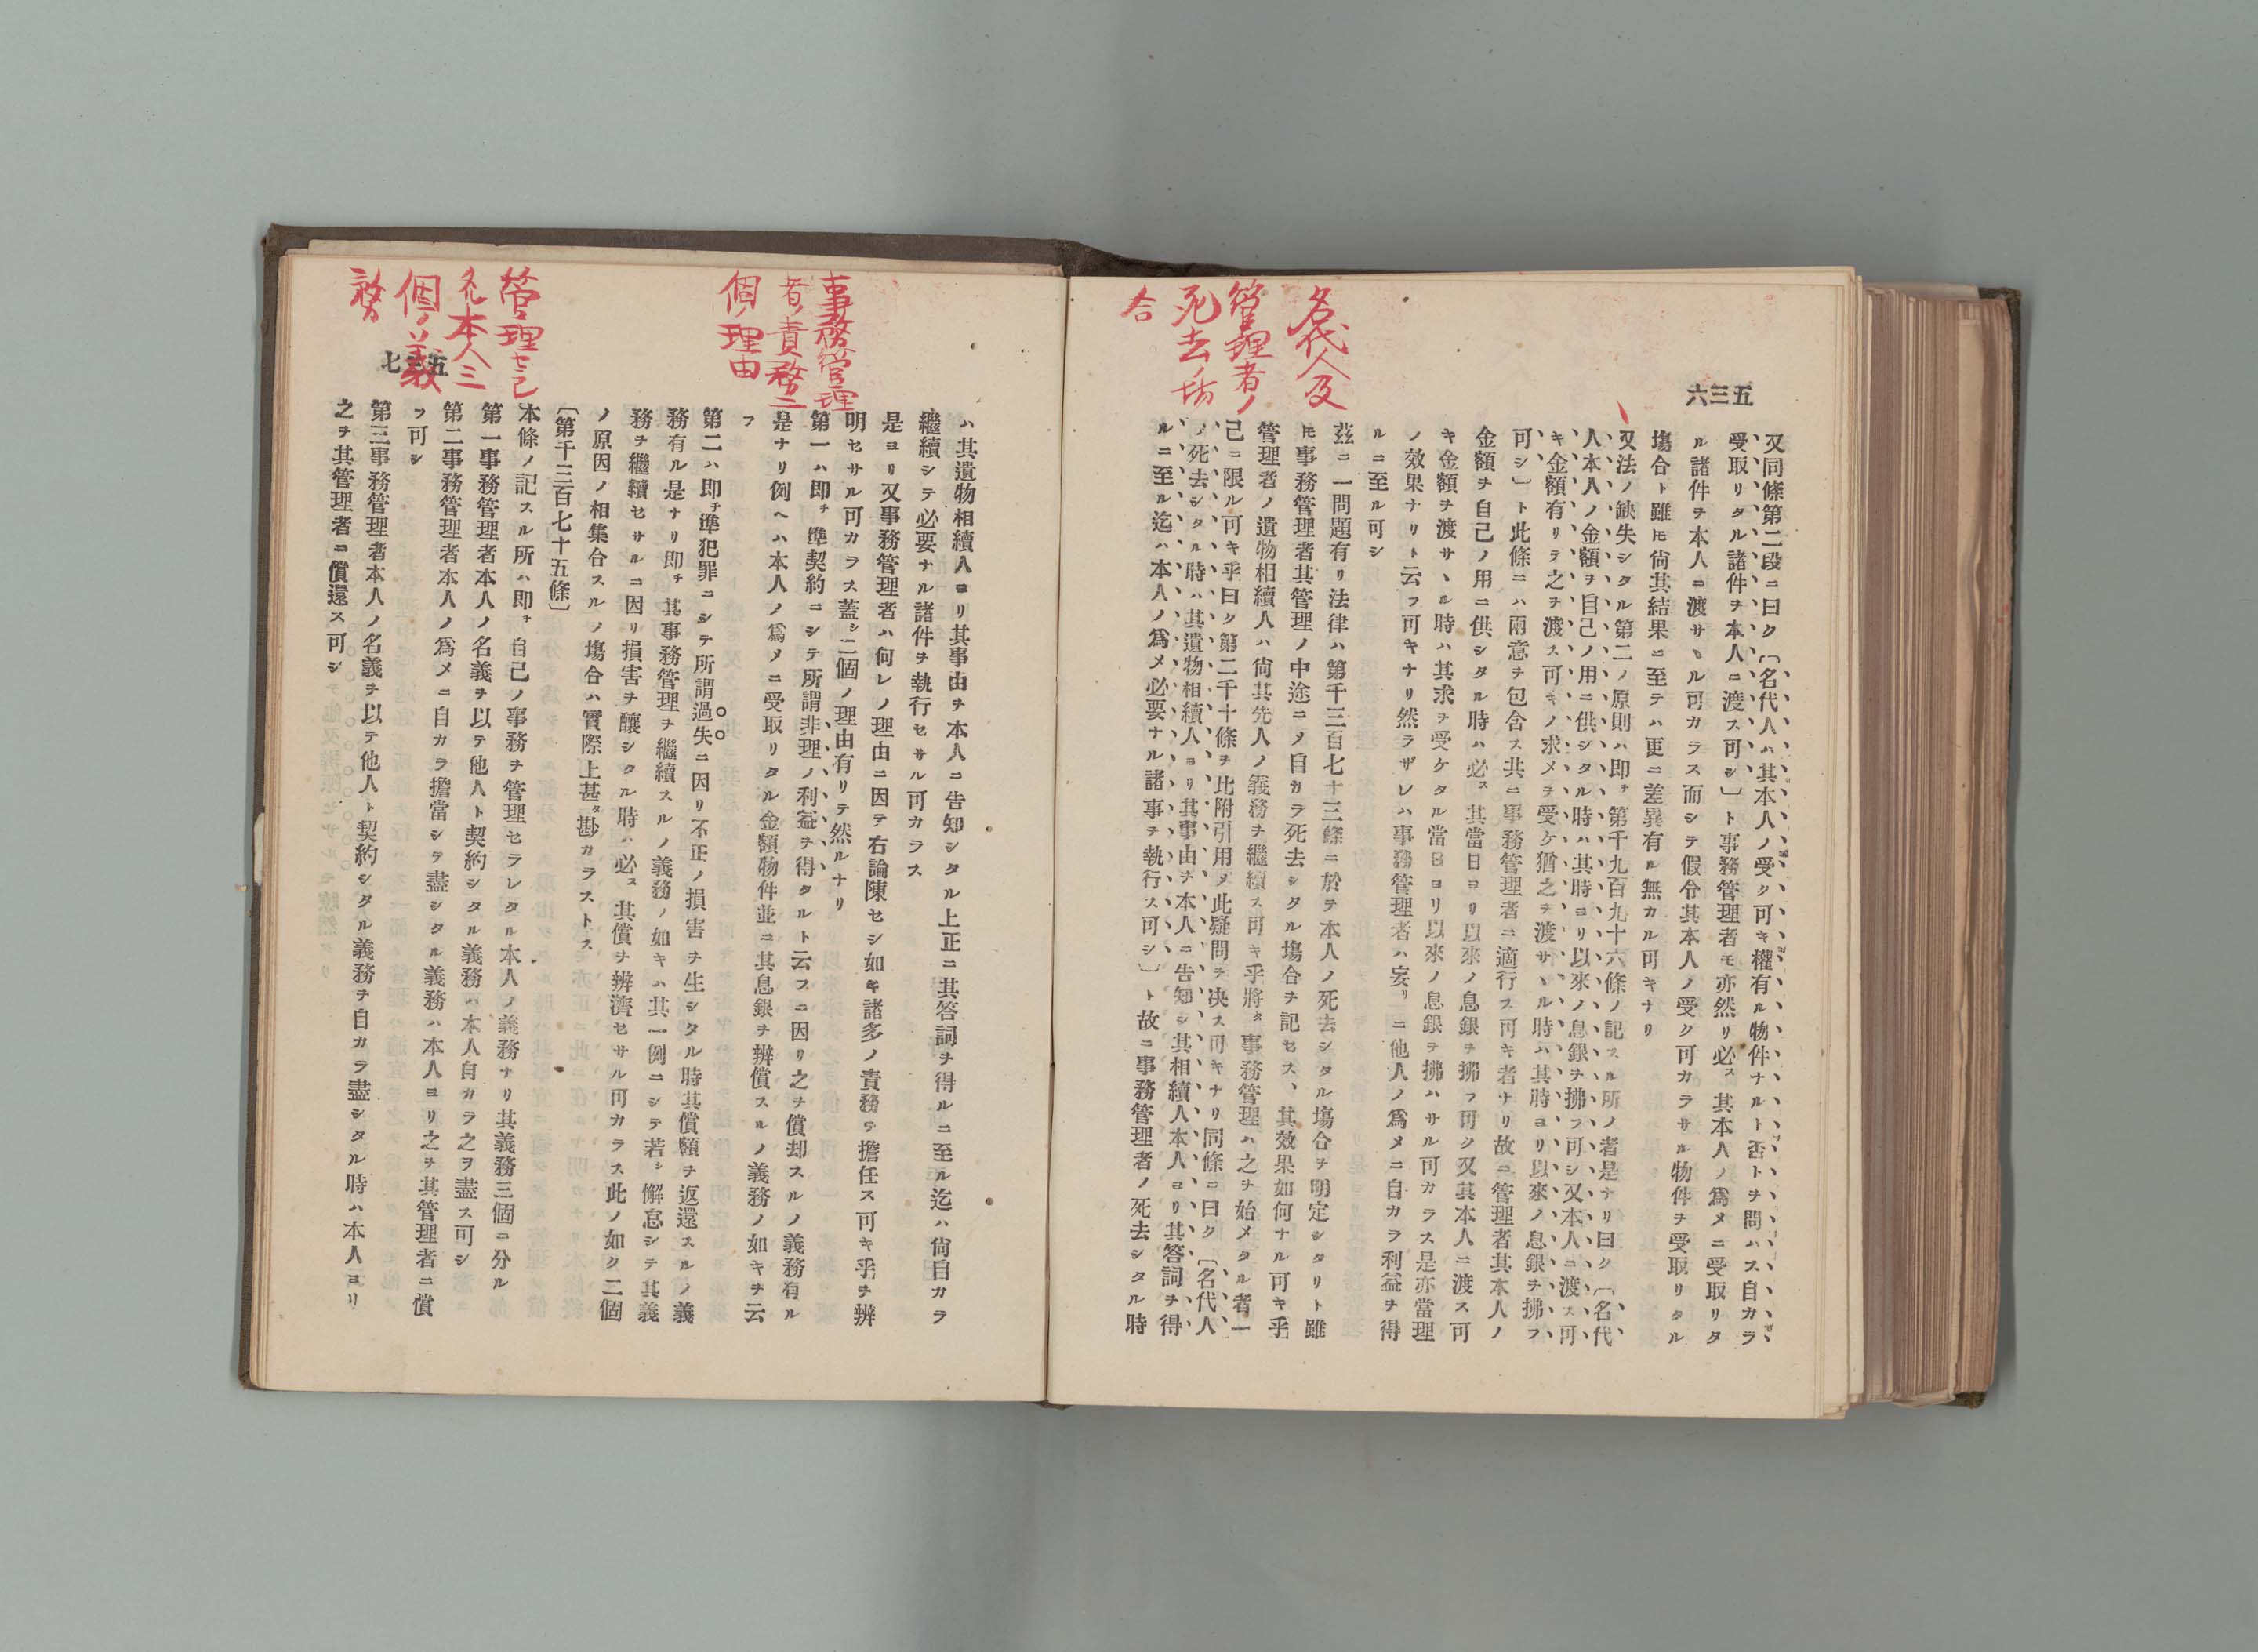 名代人及
管理者ノ
死去ノ塲
合
五三六
又同條第二段ニ曰ク〔名代人ハ其本人ノ受ク可キ權有ル物件ナルト否トヲ問ハス自カラ
受取リタル諸件ヲ本人ニ渡ス可シ〕ト事務管理者モ亦然リ必ス其本人ノ爲メニ受取リタ
ル諸件ヲ本人ニ渡サヽル可カラス而シテ假令其本人ノ受ク可カラサル物件ヲ受取リタル
塲合ト雖𪜈尙其結果ニ至テハ更ニ差異有ル無カル可キナリ
又法ノ缺失シタル第二ノ原則ハ即チ第千九百九十六條ノ記スル所ノ者是ナリ曰ク〔名代
人本人ノ金額ヲ自己ノ用ニ供シタル時ハ其時ヨリ以來ノ息銀ヲ拂フ可シ又本人ニ渡ス可
キ金額有リテ之ヲ渡ス可キノ求メヲ受ケ猶之ヲ渡サヽル時ハ其時ヨリ以來ノ息銀ヲ拂フ
可シ〕ト此條ニハ兩意ヲ包含ス共ニ事務管理者ニ適行ス可キ者ナリ故ニ管理者其本人ノ
金額ヲ自己ノ用ニ供シタル時ハ必ス其當日ヨリ以來ノ息銀ヲ拂フ可ク又其本人ニ渡ス可
キ金額ヲ渡サヽル時ハ其求ヲ受ケタル當日ヨリ以來ノ息銀ヲ拂ハサル可カラス是亦當理
ノ效果ナリト云フ可キナリ然ラザレハ事務管理者ハ妄リニ他人ノ爲メニ自カラ利益ヲ得
ルニ至ル可シ
茲ニ一問題有リ法律ハ第千三百七十三條ニ於テ本人ノ死去シタル塲合ヲ明定シタリト雖
𪜈事務管理者其管理ノ中途ニメ自カラ死去シタル塲合ヲ記セス、其效果如何ナル可キ乎
管理者ノ遺物相續人ハ尙其先人ノ義務ヲ繼續ス可キ乎將タ事務管理ハ之ヲ始メタル者一
己ニ限ル可キ乎曰ク第二千十條ヲ比附引用メ此疑問ヲ決ス可キナリ同條ニ曰ク〔名代人
ノ死去シタル時ハ其遺物相續人ヨリ其事由ヲ本人ニ告知シ其相續人本人ヨリ其答詞ヲ得
ルニ至ル迄ハ本人ノ爲メ必要ナル諸事ヲ執行ス可シ〕ト故ニ事務管理者ノ死去シタル時
事務管理
者ノ責務二
個ノ理由
管理セラ
ル本人三
個ノ義
務
五三七
ハ其遺物相續人ヨリ其事由ヲ本人ニ告知シタル上正ニ其答詞ヲ得ルニ至ル迄ハ尙自カラ
繼續シテ必要ナル諸件ヲ執行セサル可カラス
是ヨリ又事務管理者ハ何レノ理由ニ因テ右論陳セシ如キ諸多ノ責務ヲ擔任ス可キ乎ヲ辨
明セサル可カラス蓋シ二個ノ理由有リテ然ルナリ
第一ハ即チ準契約ニシテ所謂非理ノ利益ヲ得タルト云フニ因リ之ヲ償却スルノ義務有ル
是ナリ例ヘハ本人ノ爲メニ受取リタル金額物件並ニ其息銀ヲ辨償スルノ義務ノ如キヲ云
フ
第二ハ即チ準犯罪ニシテ所謂過失ニ因リ不正ノ損害ヲ生シタル時其償額ヲ返還スルノ義
務有ル是ナリ即チ其事務管理ヲ繼續スルノ義務ノ如キハ其一例ニシテ若シ懈怠シテ其義
務ヲ繼續セサルニ因リ損害ヲ釀シタル時ハ必ス其償ヲ辨濟セサル可カラス此ノ如ク二個
ノ原因ノ相集合スルノ塲合ハ實際上甚タ尠カラストス
〔第千三百七十五條〕
本條ノ記スル所ハ即チ自己ノ事務ヲ管理セラレタル本人ノ義務ナリ其義務三個ニ分ル
第一事務管理者本人ノ名義ヲ以テ他人ト契約シタル義務ハ本人自カラ之ヲ盡ス可シ
第二事務管理者本人ノ爲メニ自カラ擔當シテ盡シタル義務ハ本人ヨリ之ヲ其管理者ニ償
フ可シ
第三事務管理者本人ノ名義ヲ以テ他人ト契約シタル義務ヲ自カラ盡シタル時ハ本人ヨリ
之ヲ其管理者ニ償還ス可シ